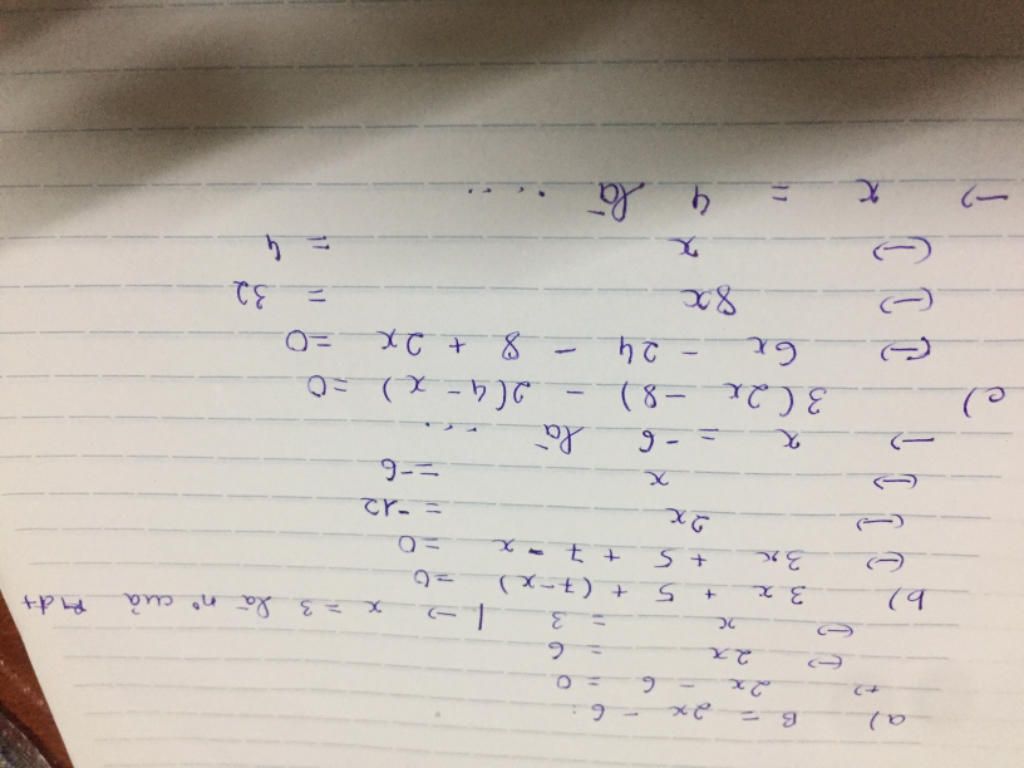 a) B = 2x - 6 :
↔ 2x - 6 = 0
↔ 2x = 6
↔ x = 3 | → x = 3 là n° của đt
b) 3x + 5 + (7-x) = 0
↔ 3x + 5 + 7 - x = 0
↔ 2x = -12
↔ x = -6
→ x = -6 là ...
c) 3(2x - 8) - 2(4 - x) = 0
↔ 6x - 24 - 8 + 2x = 0
↔ 8x = 32
↔ x = 4
→ x = 4 là ....